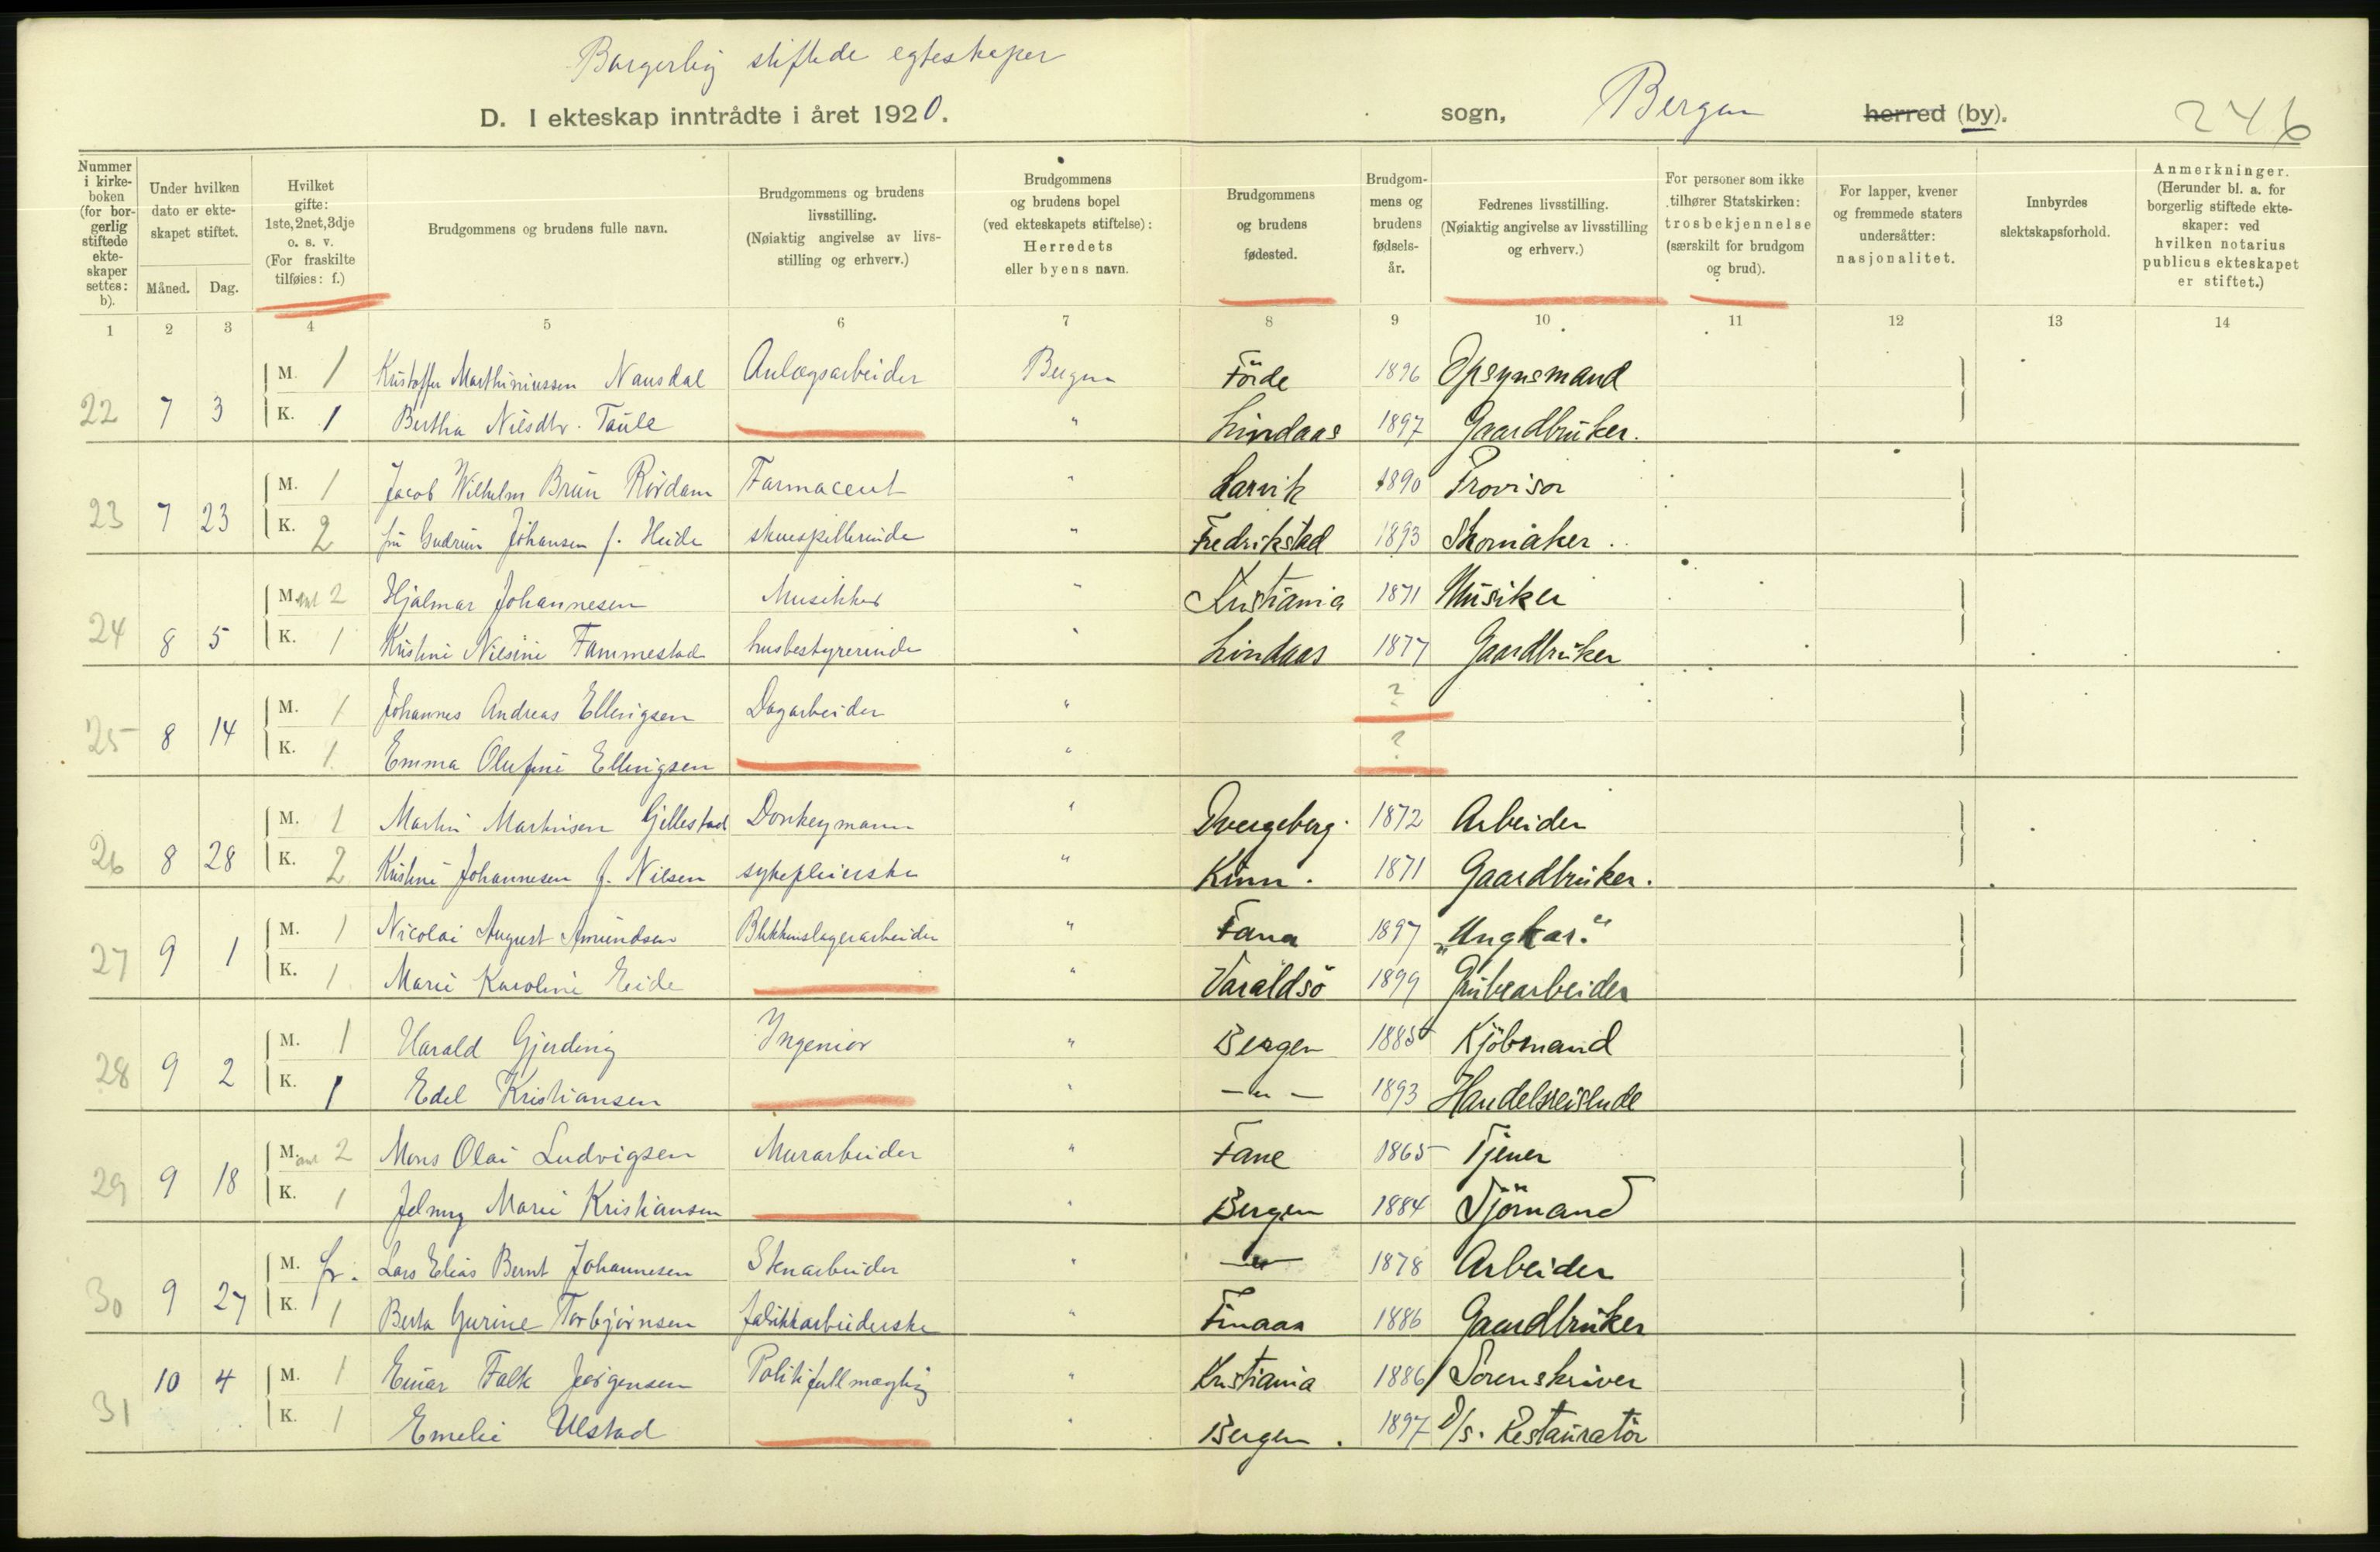 Borgerlig stiftede egteskaper
D. I ekteskap inntrådte i året 1920. sogn, Bergen herred (by). 246
Nummer i kirke-boken (for bor-gerlig stiftede ekte-skaper settes: b).
Under hvilken dato er ekte-skapet stiftet.
Måned. Dag.
Hvilket gifte: 1ste, 2net, 3dje o. s. v. (For fraskilte tilføies: f.)
Brudgommens og brudens fulle navn.
Brudgommens og brudens livsstilling. (Nøiaktig angivelse av livs-stilling og erhverv.)
Brudgommens og brudens bopel (ved ekteskapets stiftelse): Herredets eller byens navn.
Brudgommens og brudens fødested.
Brudgom-mens og brudens fødsels-år.
Fedrenes livsstilling. (Nøiaktig angivelse av livsstilling og erhverv.)
For personer som ikke tilhører Statskirken: trosbekjennelse (særskilt for brudgom og brud).
For lapper, kvener og fremmede staters undersåtter: nasjonalitet.
Innbyrdes slektskapsforhold.
Anmerkninger. (Herunder bl. a. for borgerlig stiftede ekte-skaper: ved hvilken notarius publicus ekteskapet er stiftet.)
1 2 3 4 5 6 7 8 9 10 11 12 13 14
M. 1 Kristoffer Marthiniussen Nausdal Anlægsarbeider Bergen Förde 1896 Opsynsmand
22 7 3 K. 1 Bertha Nilsdtr. Taule " Lindaas 1897 Gaardbruker.
M. 1 Jacob Wilhelm Brun Rördam Farmaceut " Larvik 1890 Provisor
23 7 23 K. 2 fru Gudrun Johansen f. Heide skuespillerinde " Fredrikstad 1893 Skomaker.
M. 2 Hjalmar Johannesen Musikker " Kristiania 1871 Musiker
24 8 5 K. 1 Kristine Nilsine Fammestad husbestyrerinde " Lindaas 1877 Gaardbruker
M. 1 Johannes Andreas Ellingsen Dagarbeider " ?
25 8 14 K. 1 Emma Olufine Ellingsen " ?
M. 1 Martin Martinsen Gjellestad Donkeymann " Dvergeberg. 1872 Arbeider
26 8 28 K. 2 Kristine Johannesen f. Nilsen sykepleierske " Kinn. 1871 Gaardbruker.
M. 1 Nicolai August Amundsen Blikkenslagerarbeider " Fana 1897 "Ungkar."
27 9 1 K. 1 Marie Karoline Eide " Varaldsö 1899 Grubearbeider
M. 1 Harald Gjerding Ingeniör " Bergen 1885 Kjöbmand
28 9 2 K. 1 Edel Kristiansen " - " - 1893 Handelsreisende
M. 2 Mons Olai Ludvigsen Murarbeider " Fane 1865 Tjener
29 9 18 K. 1 Jelmy Marie Kristiansen " Bergen 1884 Sjömand
M. fr. Lars Elias Bernt Johannesen Stenarbeider " - " - 1878 Arbeider
30 9 27 K. 1 Berta Gurine Torbjörnsen fabrikkarbeiderske " Finaas 1886 Gaardbruker
10 4 M. 1 Einar Falk Jörgensen Politifullmægtig " Kristiania 1886 Sorenskriver
31 K. 1 Emelie Ulstad " Bergen. 1897 D/s. Restauratör